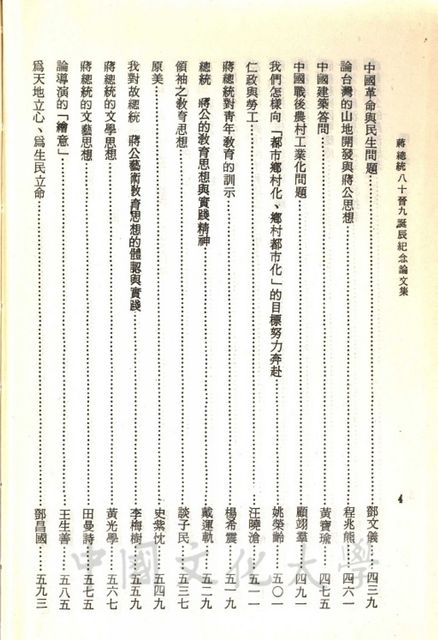 蔣總統八十晉九誕辰紀念論文集
4
中國革命與民生問題……鄧文儀…四三九
論台灣的山地開發與蔣公思想……程兆熊…四六一
中國建築答問……黃寶瑜…四七五
中國戰後農村工業化問題……顧翊羣…四九一
我們怎樣向「都市鄉村化、鄉村都市化」的目標努力奔赴……姚榮齡…五〇一
仁政與勞工……汪曉滄…五一一
蔣總統對青年教育的訓示……楊希震…五一九
總統　蔣公的教育思想與實踐精神……戴運軌…五二九
領袖之教育思想……談子民…五三七
原美……史紫忱…五四九
我對故總統　蔣公藝術教育思想的體認與實踐……李梅樹…五五九
蔣總統的文學思想……黃光學…五六七
蔣總統的文藝思想……田曼詩…五七五
論導演的「繪意」……王生善…五八五
為天地立心、為生民立命……鄧昌國…五九三
中國文化大學